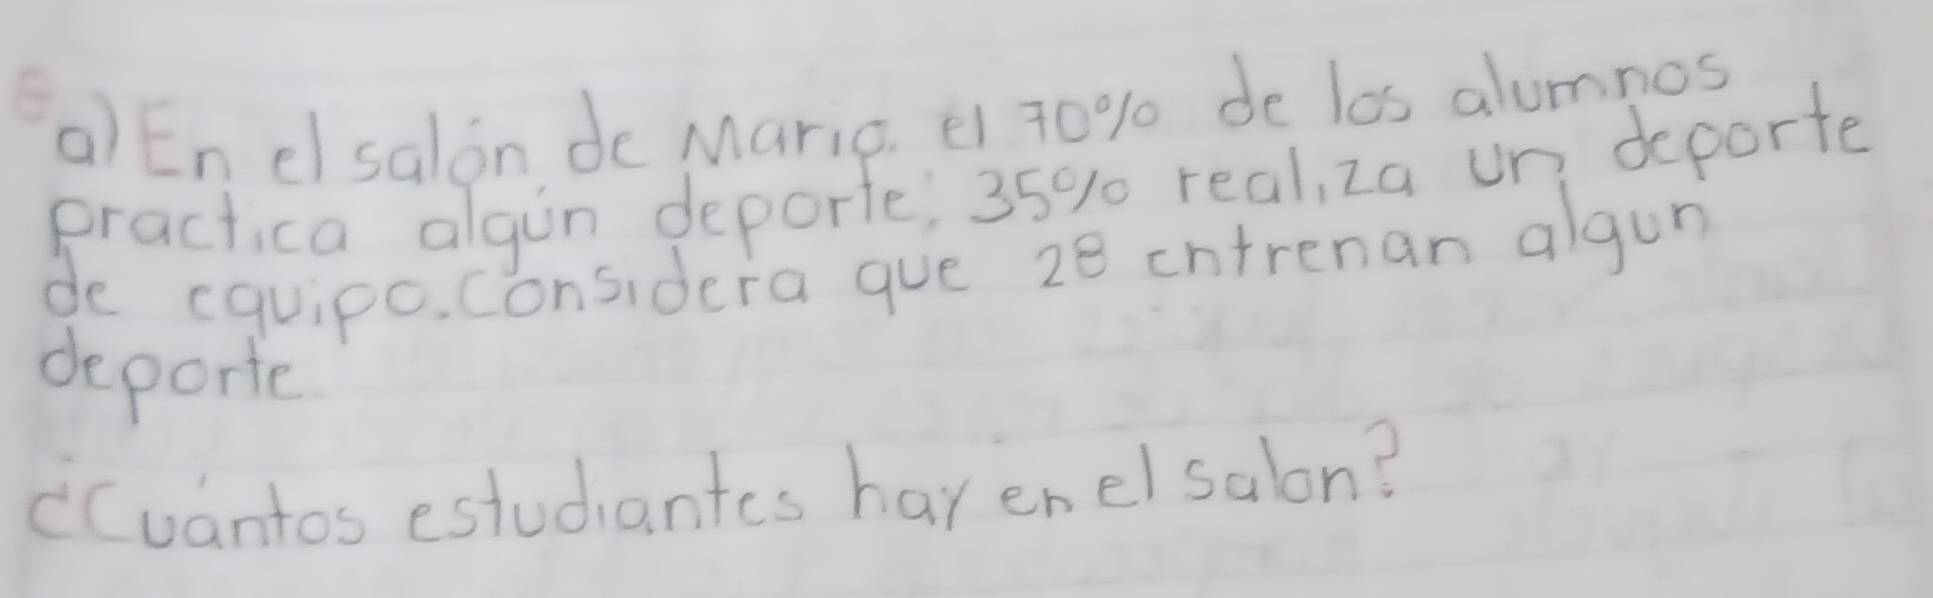 a) En el salón de Mario. el 70% de los alumnos
practica algún deporte; 35% realiza un deporte
de equipo. Considera que 28 entrenan algun
deporte.
¿Cuántos estudiantes hay en el salon?